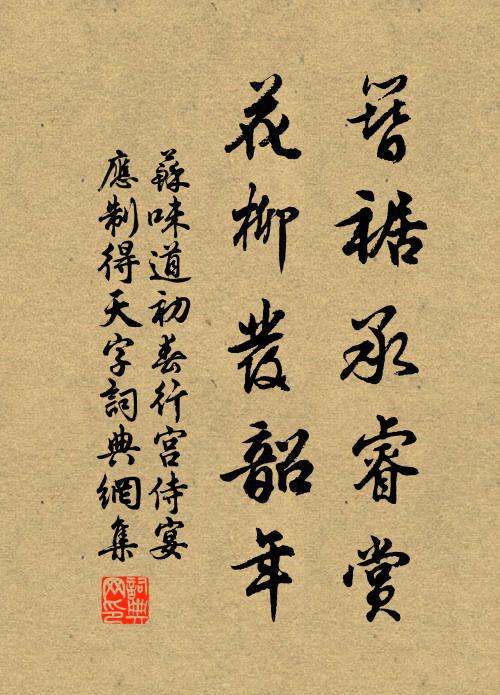 簪裾承睿賞
花柳發韶年
蘇味道初春行宮侍宴
應制得天字詞典網集
詞典網印